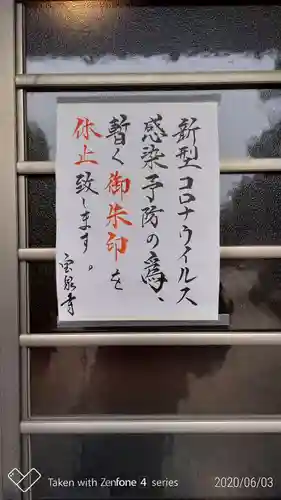 新型コロナウイルス
感染予防の為、
暫く御朱印を
休止致します。
宝勝寺
Taken with Zenfone 4 series
2020/06/03